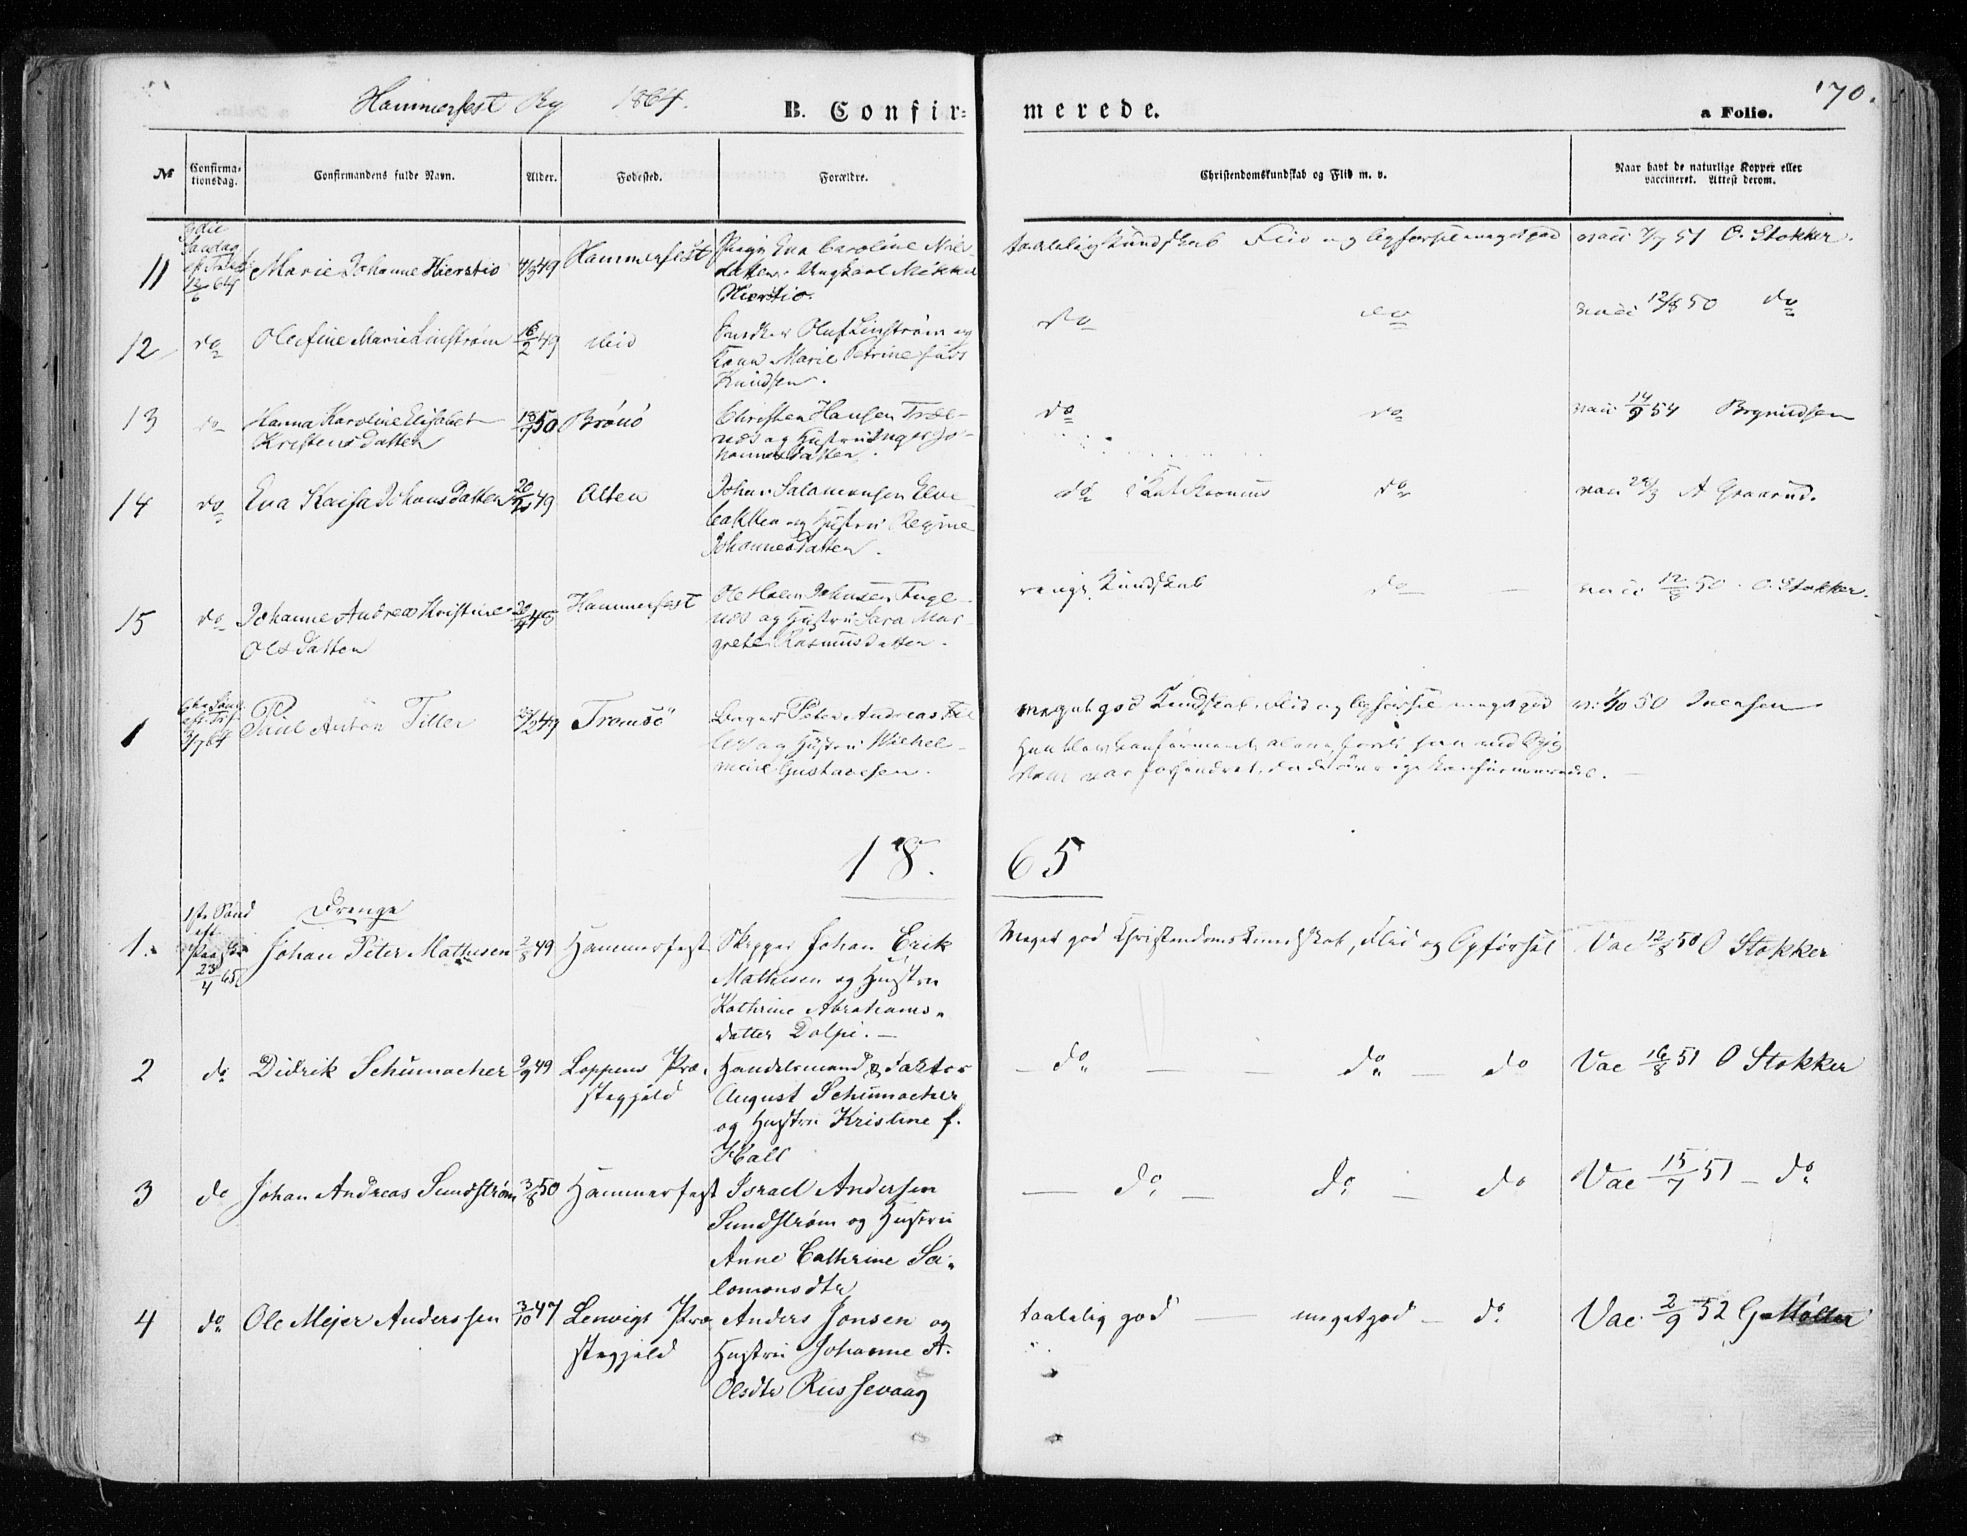 Hammerfest By 1864.
B. Confir=
merede.
a Folio.
170.
№
Confirma-
tionsdag.
Confirmandens fulde Navn.
Alder.
Fødested.
Forældre.
Christendomskundskab og Flid m. v.
Naar havt de naturlige Kopper eller
vaccineret. Attest derom.
11
12/6 64
Marie Johanne Hierstio
4/3 49
Hammerfest
Pige Eva Caroline Niels-
datter Ungkarl Mikkel
Hierstio.
taalelig Kundskab Flid og Opførsel meget god
vacc 7/7 51 O. Stokker.
12
do
Olefine Marie Linstrøm
16/2 49
ibid
Snedker Oluf Linstrøm og
Kone Marie Petrine født
Knudsen.
do
do
vacc 12/8 50 do
13
do
Hanna Karoline Elisabet
Kristensdatter
18/7 50
Brønø
Christen Hansen Træl-
næs og Hustru Inger Jo-
hannesdatter.
do
do
vacc 14/9 54 Brynildsen
14
do
Eva Kaisa Johansdatter
20/10 49
Alten
Johan Salamonsen Elve
bakken og Hustru Regine
Johannesdatter.
do
do
vacc 29/9 A Graarud.
15
do
Johanne Andrea Kristine
Olsdatter
Hammerfest
Ole Holm Johnsen Fugl-
næs og Hustru Sara Mar-
grete Rasmusdatter.
ringe Kundskab
do
vacc 12/8 50 O. Stokker.
1
Paul Anton Tiller
Tromsø
Peter Andreas Til
ler og Hustru Wilhel-
mine Gustavesen.
meget god Kundskab, Flid og Opførsel meget god
50 Svensen
Han blev konfirmeret alene, fordi han ved Syg
dom var forhindret, da de øvrige konfirmeredes.
18. 65
Drenge
1.
1ste Sønd
eft
Paaske
23/4 65
Johan Peter Mathisen
2/8 49
Hammerfest
Skipper Johan Erik
Mathisen og Hustru
Kathrine Abrahams-
datter Dolpi.
Meget god Christendomskundskab, Flid og Opførsel
Vac 12/8 50 O Stokker
2
do
Didrik Schumacher
9/9 49
Loppens Præ-
stegjeld
Handelsmand & Faktor
August Schumacher
og Hustru Kristine f.
Hall
do
do
do
Vac 16/8 51 O Stokker
3
do
Johan Andreas Sundstrøm
3/8 50
Hammerfest
Israel Andersen
Sundstrøm og Hustru
Anne Cathrine Sa-
lomonsdtr
do
do
do
Vac 15/7 51 do
4
do
Ole Mejer Anderssen
3/10 47
Lenvigs Præ
stegjeld
Anders Jonsen og
Hustru Johanne A.
Olsdtr Russevaag
taalelig god
meget god
do
Vac. 2/9 52 G Møller